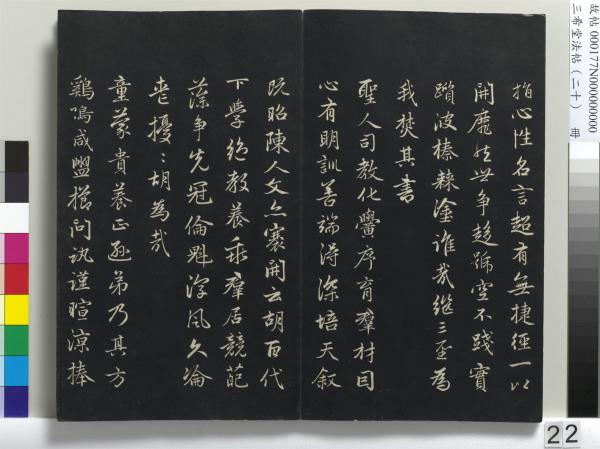 故帖 000177N000000000
三希堂法帖（二十） 冊
指心性名言超有無捷徑一以
開靡然世爭趨號空不踐實
躓彼榛棘塗誰哉繼三聖為
我焚其書
聖人司教化黌序育羣材因
心有明訓善端得深培天叙
既昭陳人文亦褰開云胡百代
下學絕教養乖羣居競葩
藻爭先冠倫魁淳風久淪
喪擾〻胡為哉
童蒙貴養正遜弟乃其方
鷄鳴咸盥櫛問訊謹暄涼捧
22